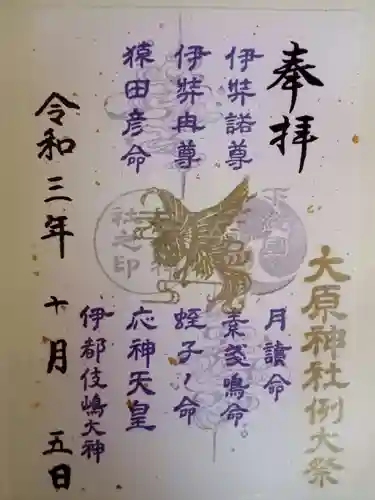 奉拝
大原神社例大祭
伊弊諾尊
伊弊冉尊
猿田彦命
月讀命
素戔鳴命
蛭子ノ命
応神天皇
伊都伎嶋大神
令和三年十月五日